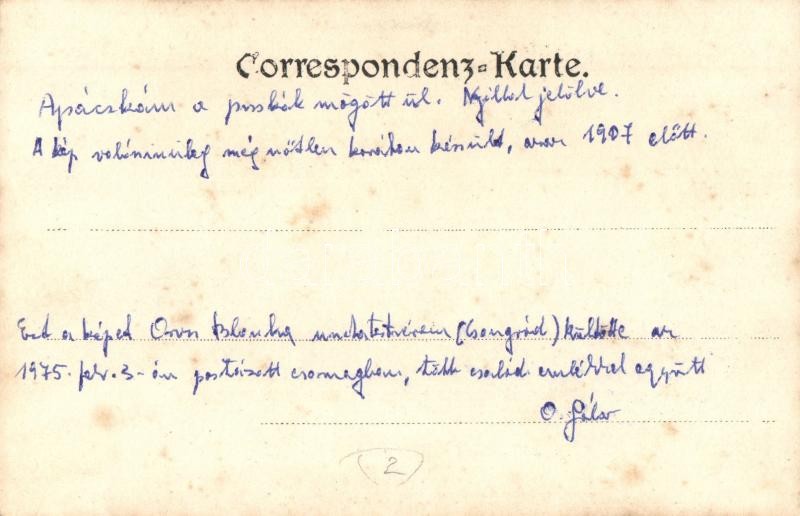 Correspondenz-Karte.
Apácskám a puskák mögött ül. Nyíllal jelölve.
A kép valószinüleg még nőtlen korában készült, azaz 1907 előtt.
Ezt a képet Orosz Blanka unokatestvérem (Csongrád) küldötte az
1975. febr. 3-án postázott csomagban, több család emlékkel együtt
O. Gábor
2